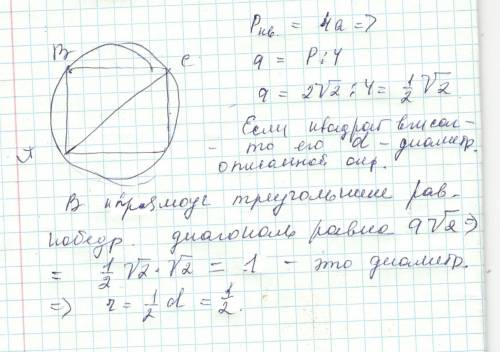 B
C
A
Pкв. = 4a =>
a = P:4
a = 2√2 : 4 = 1/2 √2
Если квадрат вписан-
то его d – диаметр.
описанной окр.
В прямоуг треугольнике рав-
нобедр. диагональ равна a√2 =>
= 1/2 √2 · √2 = 1 – это диаметр.
=> r = 1/2 d = 1/2.